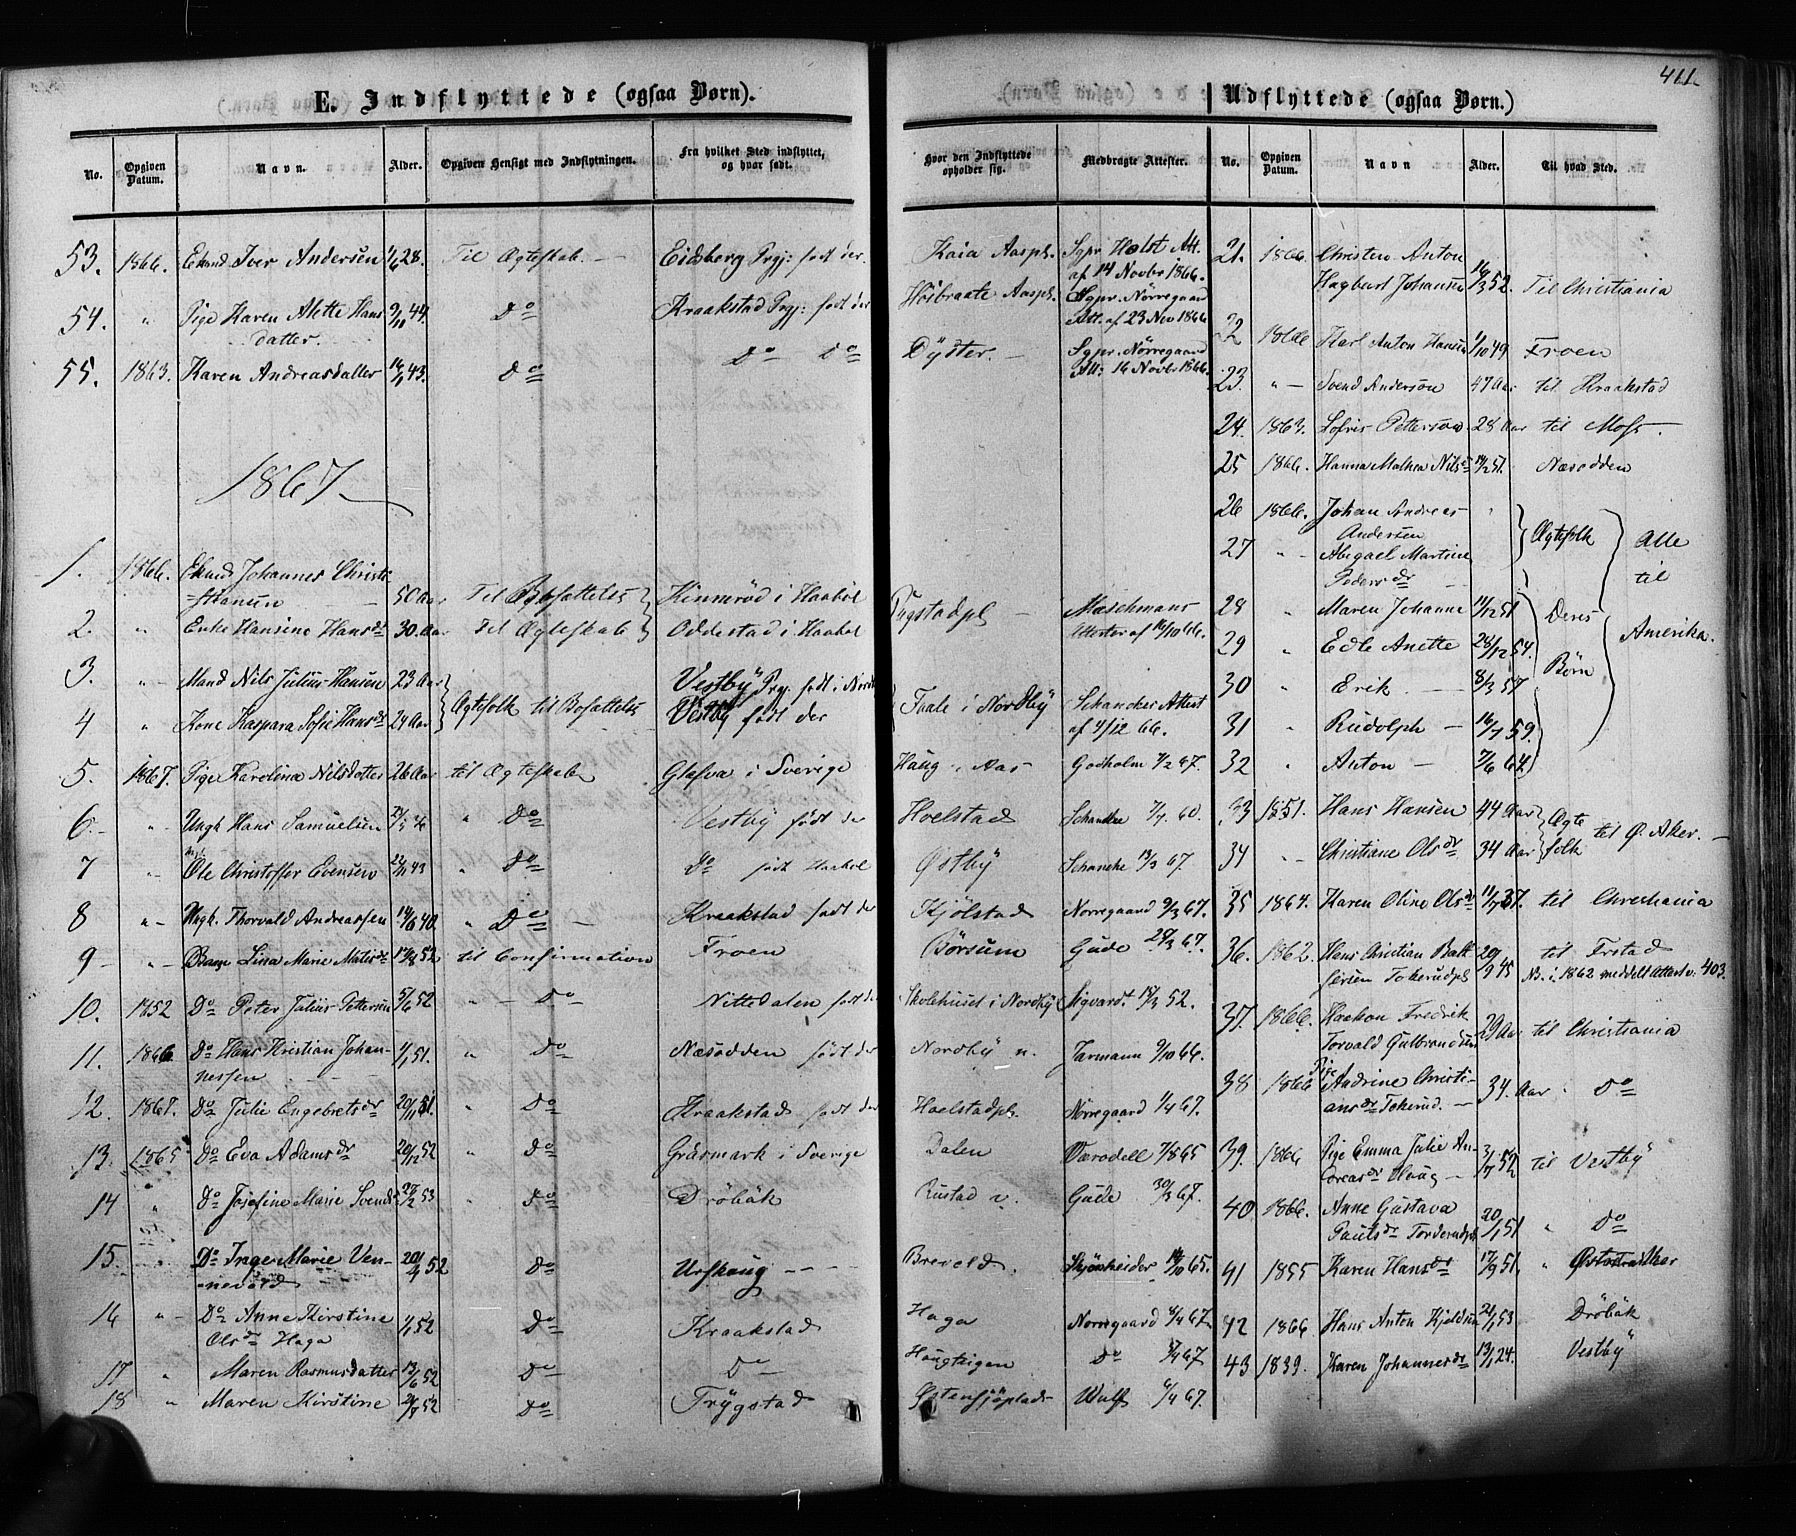 411
E. Indflyttede (ogsaa Børn).
No. Opgiven Datum. Navn. Alder. Opgiven Hensigt med Indflytningen. Fra hvilket Sted indflyttet, og hvor født.
53. 1866. Iver Andersen 1/6 28. Til Ægteskab — Eidsberg Prgj: født der.
54. " Pige Karen Alette Hans 9/11 44. Do Kraakstad Prgj: født der
datter.
55. 1863. Karen Andreasdatter 14/1 43. Do Do Do
1867
1. 1866. Johannes Christi-
=stiansen 50 Aar Til Bosættelse Kinnerød i Haabøl
2. " Enke Hansine Hansdr 30. Aar Til Ægteskab Oddestad i Haabøl
3. " Mand Nils Julius Hansen 23 Aar Vestby Prgj. født i
4 " Kone Kaspara Sofie Hansdr 24 Aar Ægtefolk til Bosættelse Vestby født der
5. 1867. Pige Karolina Nilsdotter 26 Aar til Ægteskab Glafva i Sverige
6. " Ungk Hans Samuelsen Do Vestby født der
7 " Ole Christoffer Evensen 22/11 43 " Do Do født Haabøl
8 " Ungk. Thorvald Andreassen 14/6 40. " Do — Kraakstad født der
9 " Barn Lina Marie Matisdr 17/8 52 til Confirmation Froen
10. 1852 Do Peter Julius Pettersen 5/6 52 " Do Nittedalen født der
11. 1866 Do Hans Kristian Johan- 1/1 51. " Do Næsodden født der
nessen
12. 1867. Do Julie Engebretsdr 20/11 51. " Do Kraakstad født der
13. 1865 Do Eva Adamsdr 20/12 52 " Do Gräsmark i Sverige
14 " Do Josefine Marie Svends 27/2 53 " Do Drøbak
15. " Do Inger Marie Ven- 20/4 52 Do Urskoug
nevold
16 " Do Anne Kirstine 1/1 52 Do Kraakstad
Olsdr Haga
17 " Maren Rasmusdatter 13/6 52 Do Do
18 " Maren Kirstine 24/7 52 Do Trygstad
Hvor den Indflyttede opholder sig. Medbragte Attester.
Kaia Aaspl. Sgpr Holst Att.
af 14 Novbr 1866.
Høibraate Aaspl. Sgpr. Nørregaard
Att. af 23 Nov 1866
Dyster. — Sgpr. Nørregaard
Att: 16 Novbr 1866.
Tygstadpl — Maschmans
Attester af 16/10 66.
Taale i Nordby Schanckes Attest
af 4/12 66.
Haug i Aas Godholm 7/2 67.
Hoelstad Schancke 7/4. 60.
Østby Schancke 13/3 67.
Kjølstad Nørregaard 9/3 67.
Børsum Gude 29/3 67.
Skolehuset i Nordby Sigvardt 18/3 52.
Nordby n. Jarmann 9/10 66.
Hoelstadpl. Nørregaard 1/4 67.
Dalen 7/8 65
Rustad v. Gude 30/3 67.
Brevold. Skjønheider 14/10 65.
Haga Nørregaard 4/4 67.
Haugteigen Do 5/4 67.
Østensjøplads Wulf 6/4 67.
Udflyttede (ogsaa Børn.)
No. Opgiven Datum. Navn Alder. Til hvad Sted.
21. 1866. Christen Anton
Hagbart Johansen 16/3 52. Til Christiania
22 1866 Karl Anton Hansen 1/10 49 Froen
23. " — Svend Andersøn 47 Aar til Kraakstad
24. 1863. Sofris Pettersen 28 Aar til Moss.
25 1866. Hanna Mathea Nilsdr 14/2 51. Næsodden
26 1866. Johan Andreas "
Andersen Ægtefolk Alle
27 " Abigael Martine
Pedersdr — til
28 " Maren Johanne 11/12 51 Deres
29 " Edle Anette 28/12 54. Amerika.
30 " Erik. — 8/3 57 Børn
31 " Rudolph — 16/7 59.
32 " Anton — 7/6 64
33 1851. Hans Hansen 44 Aar Ægte
34 " Christiane Olsdr 34 Aar folk til Ø. Aker. —
35 1864. Karen Oline Olsdr 11/7 37. til Christiania
36. 1862. Hans Christian Balt 20/9 45 til Frstad
sersen Tokerudpl No. i 1862 meddelt Attest v. 403.
37. 1866. Haakon Fredrik 29 Aar til Christiania
Torvald Gulbrandsen
38 1866 Pige Andrine Christi- 34. Aar " Do
ansdr Tokerud. —
39. 1866 Pige Emma Julie An- til Vestby
dreasdr Haug —
40 1866. Anne Gustava 20/1 51 " Do
Paulsdr
41 1855 Karen Hansdr 17/9 51. "
42 1866 Hans Anton Kjeldsen 21/1 53 Drøbak
43 1839. Karen Johannesdr 13/1 24. Vestby